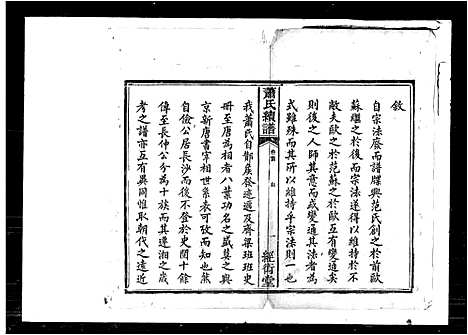 敘
自宗法廢而譜牒興范氏創之於前歐
蘇繼之於後而宗法遂得以維持於不
敝夫歐之於范蘇之於歐互有變通矣
則後之人師其意而或變通其法者為
式雖殊而其所以維持乎宗法則一也
蕭氏續譜
卷首
敘
一
經術堂
我蕭氏自酇侯發迹遞及齊梁班班史
冊至唐為相者八葉功名之盛奠之與
京新唐書宰相世系表可考而知也
自儉公居長沙而後不登於史閱十餘
傳至長仲公分為十房而其遷湘之或
考之譜亦互有異同惟取朝代之遠近